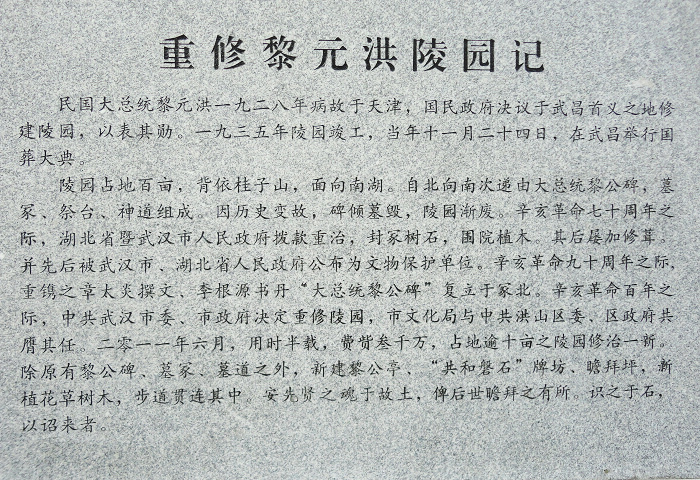 重修黎元洪陵园记
民国大总统黎元洪一九二八年病故于天津，国民政府决议于武昌首义之地修
建陵园，以表其勋。一九三五年陵园竣工，当年十一月二十四日，在武昌举行国
葬大典。
陵园占地百亩，背依桂子山，面向南湖。自北向南次递由大总统黎公碑，墓
冢、祭台、神道组成。因历史变故，碑倾墓毁，陵园渐废。辛亥革命七十周年之
际，湖北省暨武汉市人民政府拨款重治，封冢树石，国院植木。其后屡加修葺。
并先后被武汉市、湖北省人民政府公布为文物保护单位。辛亥革命九十周年之际，
重镌之章太炎撰文、李根源书丹“大总统黎公碑”复立于冢北。辛亥革命百年之
际，中共武汉市委、市政府决定重修陵园，市文化局与中共洪山区委、区政府共
膺其任。二零一一年六月，用时半载，费赀叁千万，占地逾十亩之陵园修治一新。
除原有黎公碑、墓冢、墓道之外，新建黎公亭、“共和磐石”牌坊、瞻拜坪，新
植花草树木，步道贯连其中 安先贤之魂于故土，俾后世瞻拜之有所。识之于石，
以诏来者。